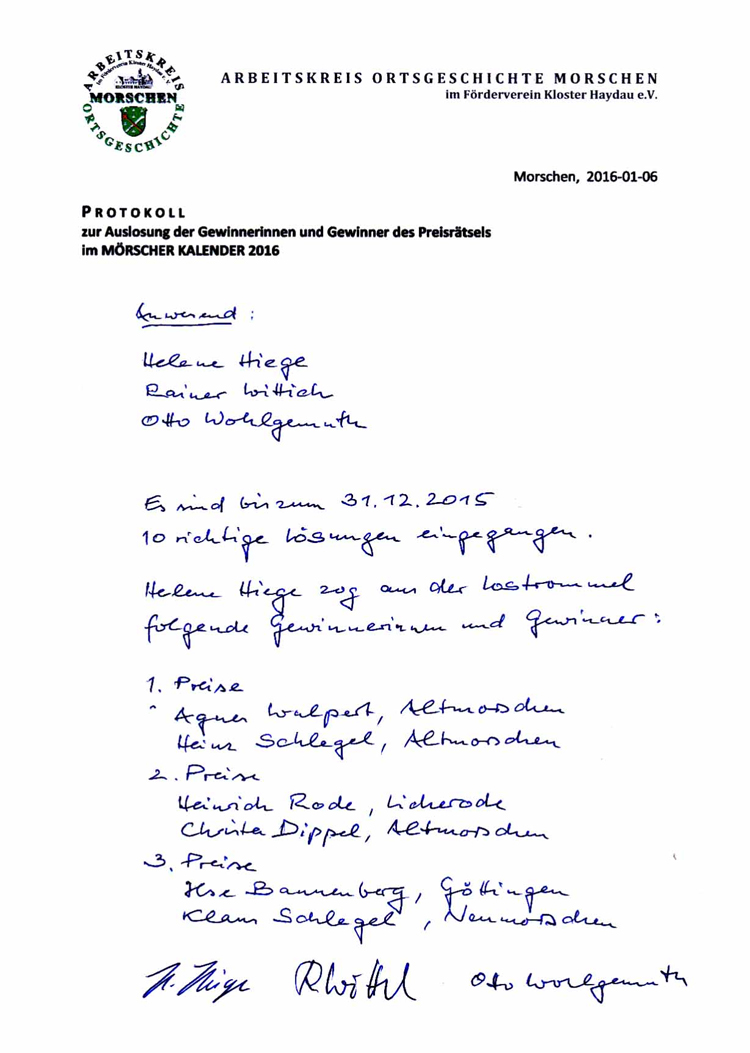 ARBEITSKREIS
im Förderverein Kloster Haydau e.V.
KLOSTER HAYDAU
MORSCHEN
ORTSGESCHICHTE
ARBEITSKREIS ORTSGESCHICHTE MORSCHEN
im Förderverein Kloster Haydau e.V.
Morschen, 2016-01-06
PROTOKOLL
zur Auslosung der Gewinnerinnen und Gewinner des Preisrätsels
im MÖRSCHER KALENDER 2016
Anwesend :
Helene Hiege
Rainer Wittich
Otto Wohlgemuth
Es sind bis zum 31.12.2015
10 richtige Lösungen eingegangen.
Helene Hiege zog aus der Lostrommel
folgende Gewinnerinnen und Gewinner:
1. Preise
Agnes Walpert, Altmorschen
Heinz Schlegel, Altmorschen
2. Preise
Heinrich Rode, Licherode
Christa Dippel, Altmorschen
3. Preise
Ilse Bannenberg, Göttingen
Klaus Schlegel, Neumorschen
H. Hiege RWittich Otto Wohlgemuth